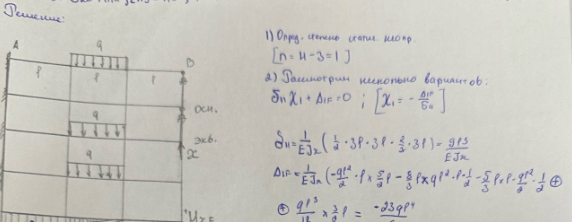 Решение:
A
q
l
l
l
B
осн.
q
экв.
X
q
1) Опред. степень статич. неопр.
[n = 4 - 3 = 1]
2) Рассмотрим несколько вариантов:
δ₁₁X₁ + Δ1F = 0 ; [X₁ = - Δ1F/δ₁₁]
δ₁₁ = 1/EJx (1/2 · 3l · 3l · 2/3 · 3l) = 9l³/EJx
Δ1F = 1/EJx (-ql²/2 · l × 5/2 l - 5/3 l × ql² · l · 1/2 - 5/3 l · l · ql²/2 · 1/2 ⊕
⊕ ql³/12 × 3/2 l = -23ql⁴